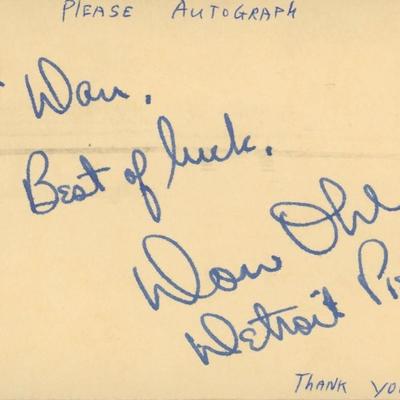 PLEASE AUTOGRAPH
Don,
Best of luck.
Don Ohl
Detroit Pi
THANK YOU